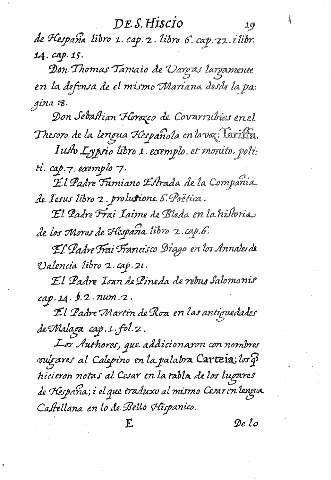 DE S. HISCIO 19
de Hespaña libro 1. cap. 2. libro 6. cap. 22. i libr.
14. cap. 15.
Don Thomas Tamaio de Vargas largamente
en la defensa de el mismo Mariana desde la pa-
gina 18.
Don Sebastian Horozco de Covarrubias en el
Thesoro de la lengua Hespañola en la voz, Tariffa.
Iusto Lypsio libro 1. exemplo. et monito. polí-
ti. cap. 7. exemplo 7.
El Padre Famiano Estrada de la Compañia
de Iesus libro 2. prolusione 6. Poëtica.
El Padre Frai Iaime de Bleda en la historia
de los Moros de Hespaña libro 2. cap. 6.
El Padre Frai Francisco Diago en los Annales de
Valencia libro 2. cap. 21.
El Padre Ioan de Pineda de rebus Salomonis
cap. 14. §. 2. num. 2.
El Padre Martin de Roa en las antiguedades
de Malaga cap. 1. fol. 2.
Los Authores, que addicionaron con nombres
vulgares al Calepino en la palabra Carteia; los q̃
hicieron notas al Cesar en la tabla de los lugares
de Hespaña; i el que traduxo al mismo Cesar en lengua
Castellana en lo de Bello Hispanico.
E De lo